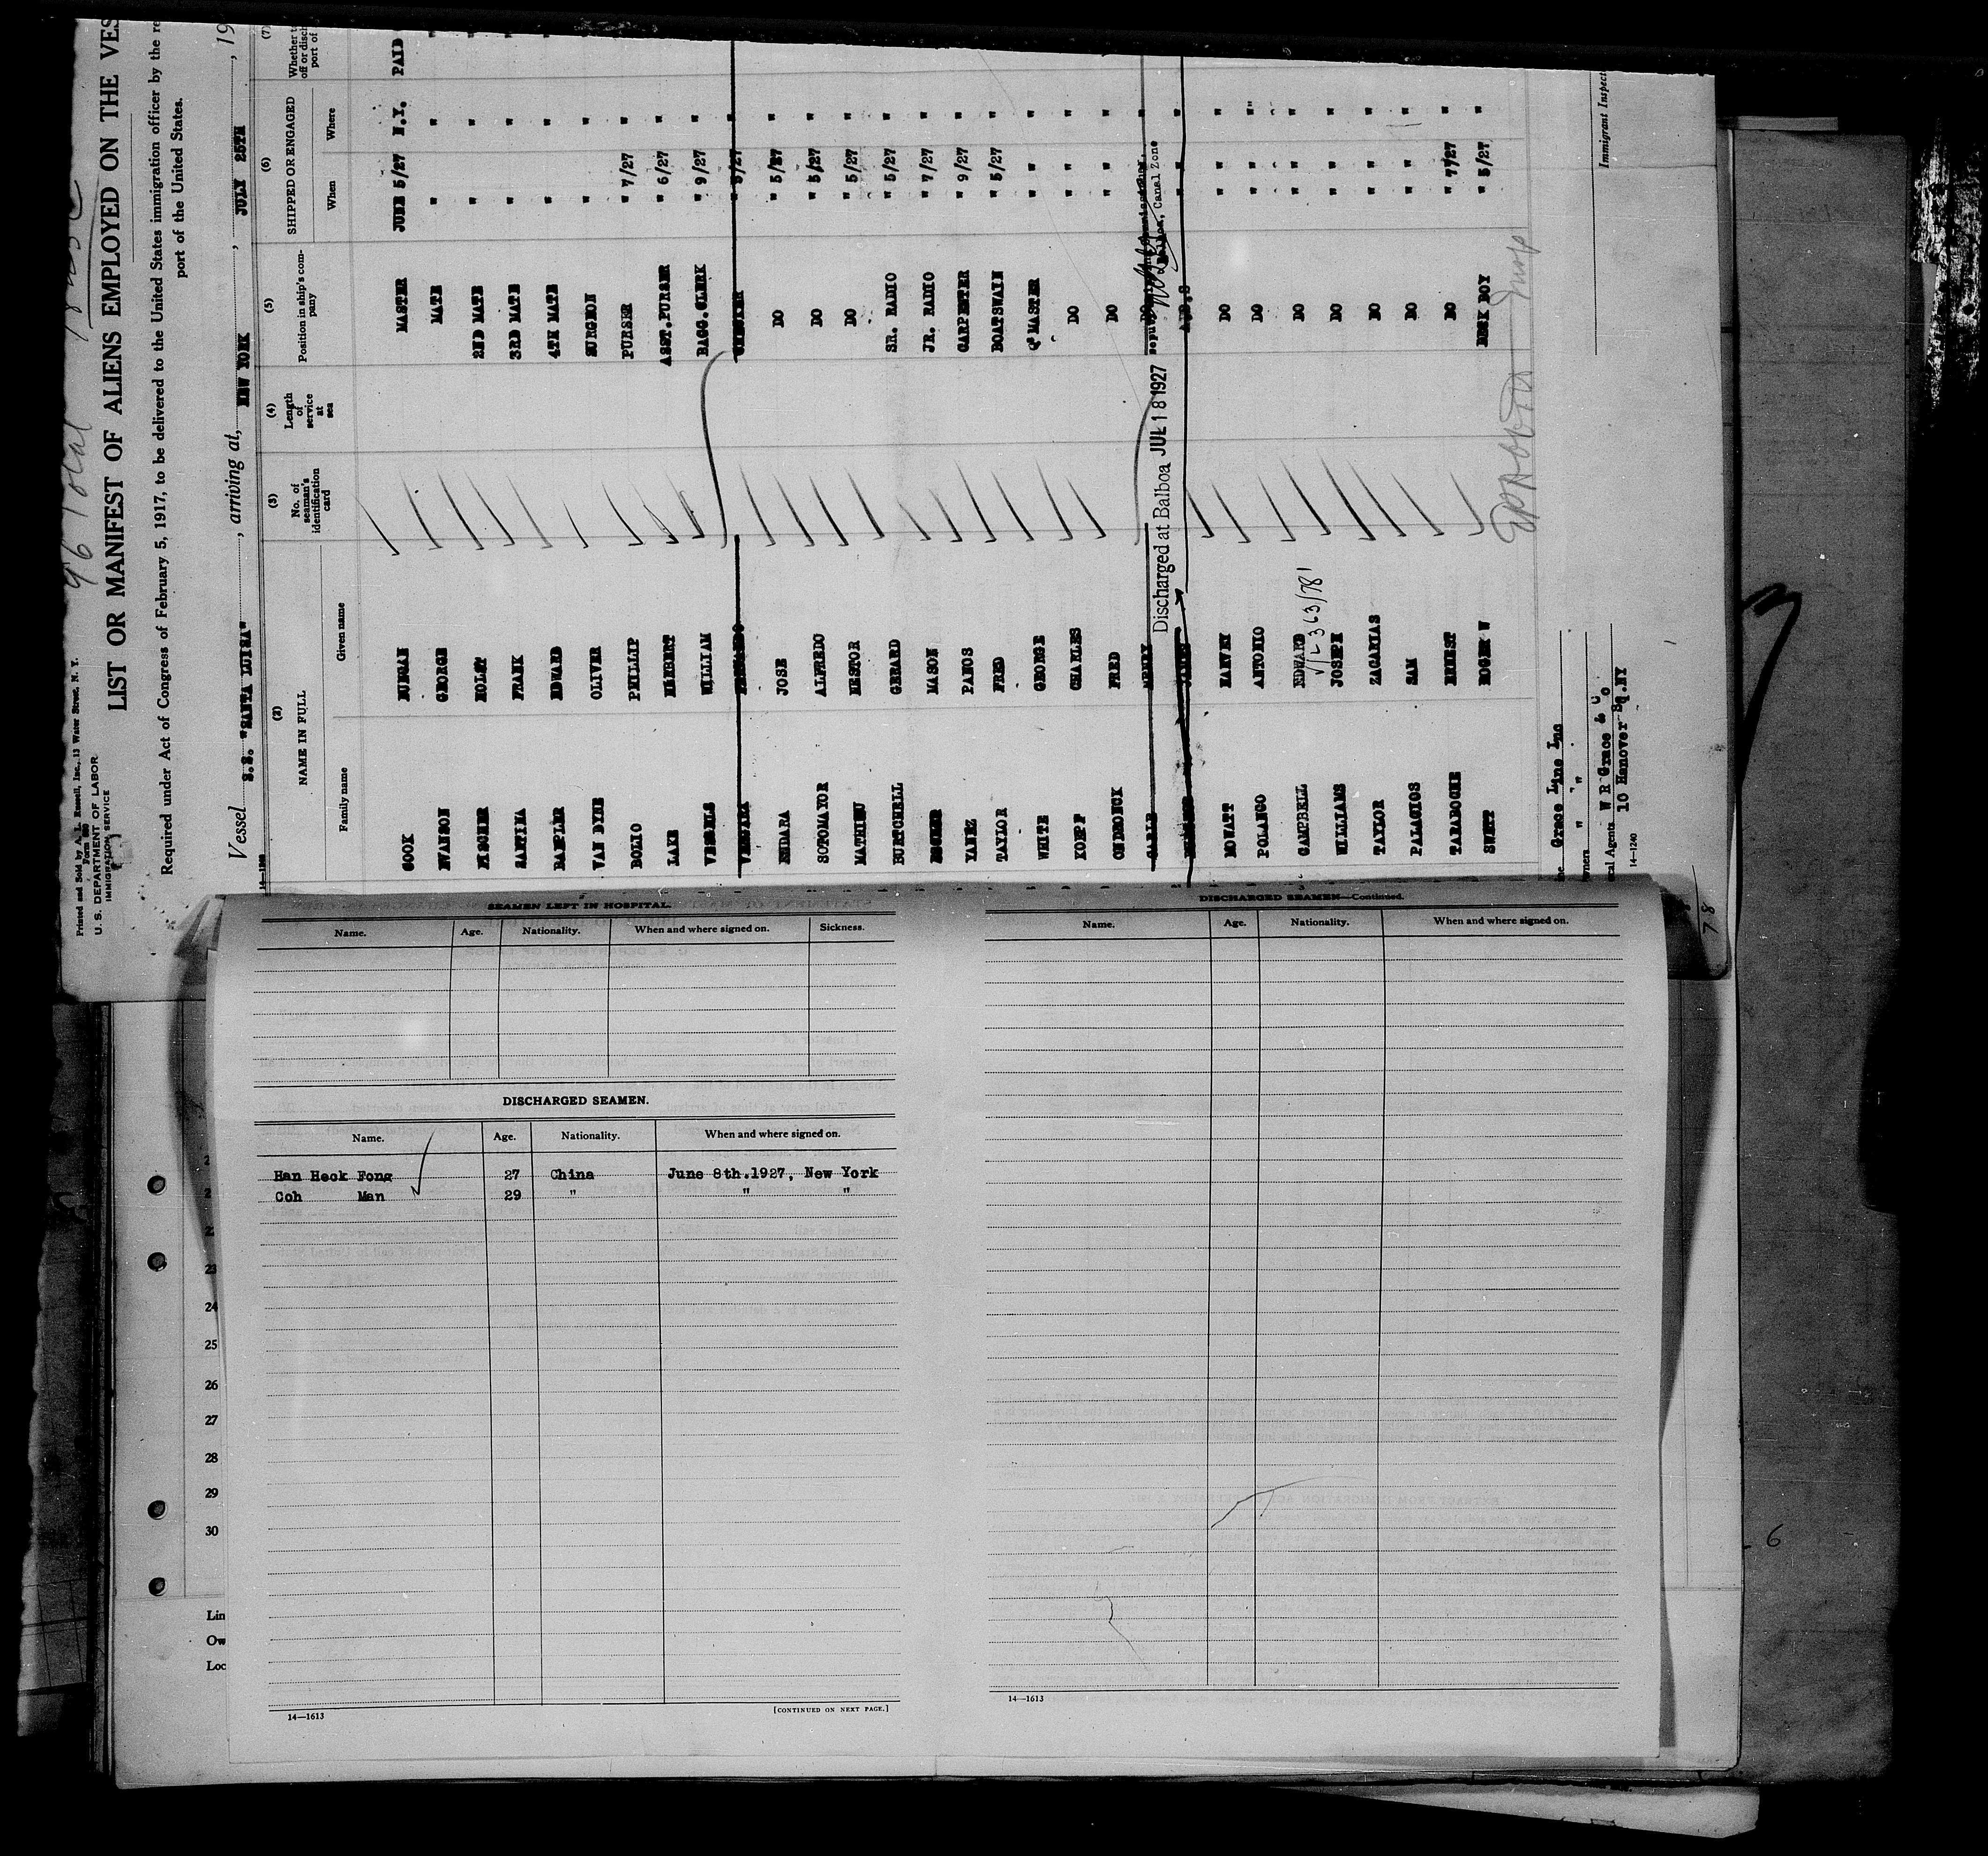 Printed and Sold by A. L. Russell, Inc., 13 Water Street, N. Y.
U. S. DEPARTMENT OF LABOR
IMMIGRATION SERVICE
96 Total
LIST OR MANIFEST OF ALIENS EMPLOYED ON THE VES
Required under Act of Congress of February 5, 1917, to be delivered to the United States immigration officer by the re
port of the United States.
Vessel S.S. "SANTA LUISA", arriving at, NEW YORK, JULY 25TH, 19
(2) NAME IN FULL
(3) No. of seaman's identification card
(4) Length of service at sea
(5) Position in ship's company
(6) SHIPPED OR ENGAGED
(7) Whether
off or disch
port of
Family name Given name When Where
COOK DUNCAN MASTER JUNE 5/27 N.Y. PAID
EVANSON GEORGE MATE " "
FISCHER HOLST 2ND MATE " "
FRANK 3RD MATE " "
EDWARD 4TH MATE " "
VAN DYNE OLIVER SURGEON " "
BOLIO PHILLIP PURSER " 7/27 "
LAKE HERBERT ASST.PURSER " 6/27 "
VESSELS WILLIAM BAGG.CLERK " 9/27 "
" 5/27 "
ENDARA JOSE DO " 5/27 "
SOTOMAYOR ALFREDO DO " 5/27 "
MATHEU NESTOR DO " 5/27 "
BURTCHELL GERARD SR. RADIO " 5/27 "
MASON JR. RADIO " 7/27 "
YANEZ PANOS CARPENTER " 9/27 "
TAYLOR FRED BOATSWAIN " 5/27 "
WHITE GEORGE Q'MASTER " "
KOEPP CHARLES DO " "
FRED DO " "
HENRY
Discharged at Balboa JUL 18 1927
Balboa, Canal Zone
JAMES A.B.S " "
MOWATT HARVEY DO " "
POLANCO ANTONIO DO " "
CAMPBELL EDWARD DO " "
WILLIAMS JOSEPH DO " "
TAYLOR ZACARIAS DO " "
PALACIOS SAM DO " "
TARABOCHE ERNEST DO " 7/27 "
SWETT ROGER W DECK BOY " 5/27 "
Grace Line Inc
wners " " .
cal Agents W R Grace & Co
10 Hanover Sq.NY
14—1240
Immigrant Inspect
78
SEAMEN LEFT IN HOSPITAL.
Name. Age. Nationality. When and where signed on. Sickness.
DISCHARGED SEAMEN.
Name. Age. Nationality. When and where signed on.
Han Heck Fong 27 China June 8th.1927, New York
Coh Man 29 " " "
14—1613 [CONTINUED ON NEXT PAGE.]
DISCHARGED SEAMEN—Continued.
Name. Age. Nationality. When and where signed on.
14—1613
24
25
26
27
28
29
30
Lin
Ow
Loc
6